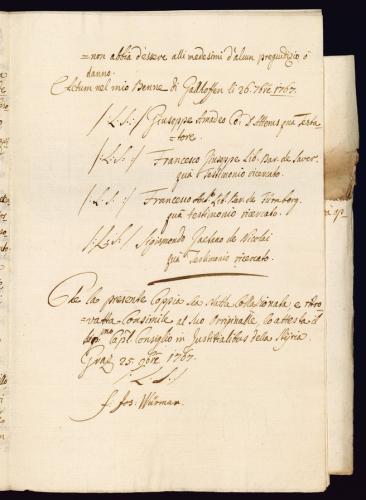 =non abbia d'essere alli medesimi d'alcun pregiudizio ó
danno.
Actum nel mio Benne di Gallhoffen li 26. 7bre 1767.
/:L:S:/ Giuseppe Amadeo Co: d'Attems quà Testa=
=tore.
/:L:S:/ Francesco Giuseppe Lib. Bar. de
quà Testimonio ricercato.
/:L:S:/ Francesco Ant. Lib. Bar. de Ternberg
quà testimonio ricercato.
/:L:S:/ Sigismondo Gaetano de Nicolai
quà Testimonio ricercato.
Che la presente Coppia sia statta Collazionata, e ritro=
=vatta Consimile al suo Originalle, Co attesta il
Capl. Consiglio in Justitialibus della Stÿria.
Graz 25. 9bre 1767.
/:L:S:/
f: Jos: Würman.